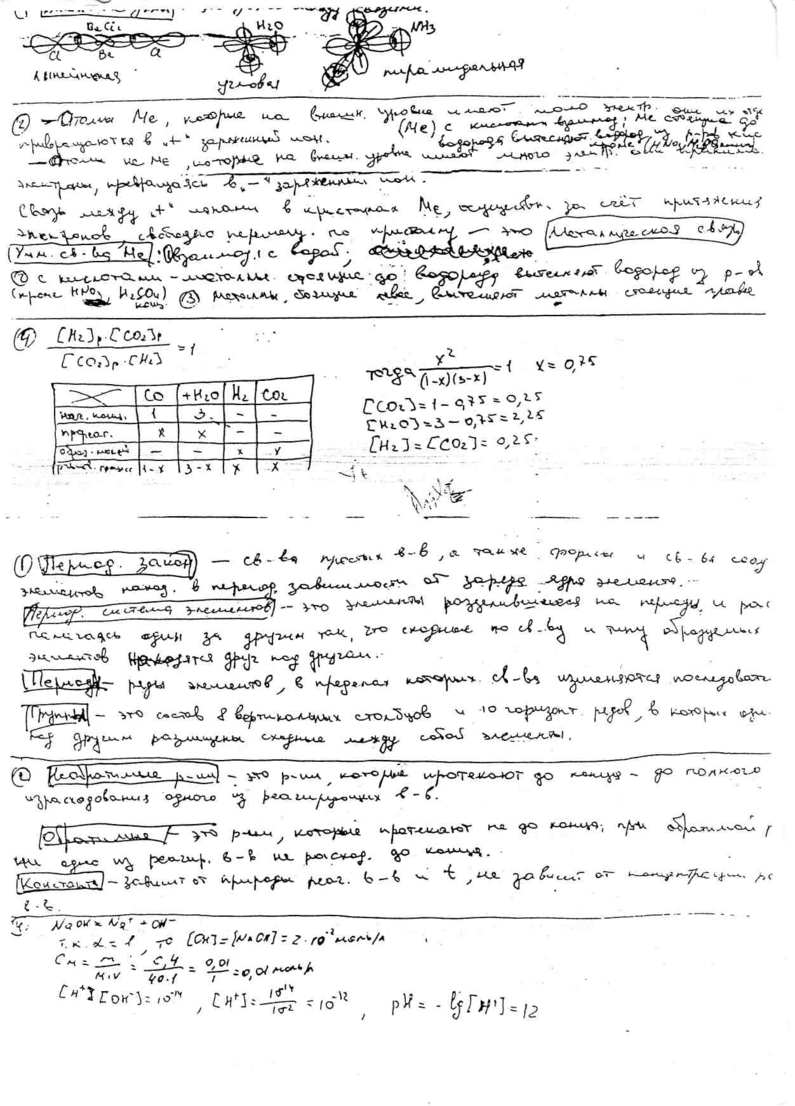 BeCl2 H2O NH3
Cl Be Cl
линейная угловая пирамидальная
② – Атомы Ме, которые на внешн. уровне имеют мало электр. они их
превращаются в „+“ заряженный ион. (Ме) с кислотами взаимод; Ме стоящие до
водорода вытесняют водород из р-ров кис
– Атомы не Ме, которые на внешн. уровне имеют много электр. они
электроны, превращаясь в „–“ заряженный ион.
Связь между „+“ ионами в кристалах Ме, осуществл. за счёт притяжения
электронов, свободно перемещ. по кристаллу – это Металлическая связь
Хим. св-ва Ме: взаимод. с водой,
② с кислотами – металлы стоящие до водорода вытесняют водород из р-ов
(кроме HNO3, H2SO4) конц. ③ металлы, стоящие левее, вытесняют металлы стоящие правее
④ [H2]р·[CO2]р
[CO2]р·[H2] =1
CO +H2O H2 CO2
нач. конц. 1 3 – –
прореаг. x x – –
образ. молей – – x x
1-x 3-x x x
тогда x²/(1-x)(3-x) =1 x = 0,75
[CO2]=1-0,75=0,25
[H2O]=3-0,75=2,25
[H2]=[CO2]=0,25.
① Период. закон – св-ва простых в-в, а также формы и св-ва соед
элементов наход. в период. зависимости от заряда ядра элемента.
Период. система элементов – это элементы разделившееся на периоды и рас
палагаясь один за другим так, что сходные по св-ву и типу образуемых
элементов находятся друг под другом.
Период – ряды элементов, в пределах которых св-ва изменяются последоват
Группы – это состав 8 вертикальных столбцов и 10 горизонт. рядов, в которых один
над другим размещены сходные между собой элементы.
② Необратимые р-ии – это р-ии, которые протекают до конца – до полного
израсходования одного из реагирующих в-в.
Обратимые – это р-ии, которые протекают не до конца; при обратимой
ни одно из реагир. в-в не расход. до конца.
Константа – зависит от природы реаг. в-в и t, не зависит от концентрации
в-в.
4: NaOH = Na⁺ + OH⁻
т.к. α = 1, то [OH]=[NaOH]=2·10⁻² моль/л
Cм = m/M·V = 0,4/40·1 = 0,01/1 = 0,01 моль/л
[H⁺][OH⁻]=10⁻¹⁴, [H⁺]=10¹⁴/10² = 10⁻¹², pH = -lg[H⁺]=12